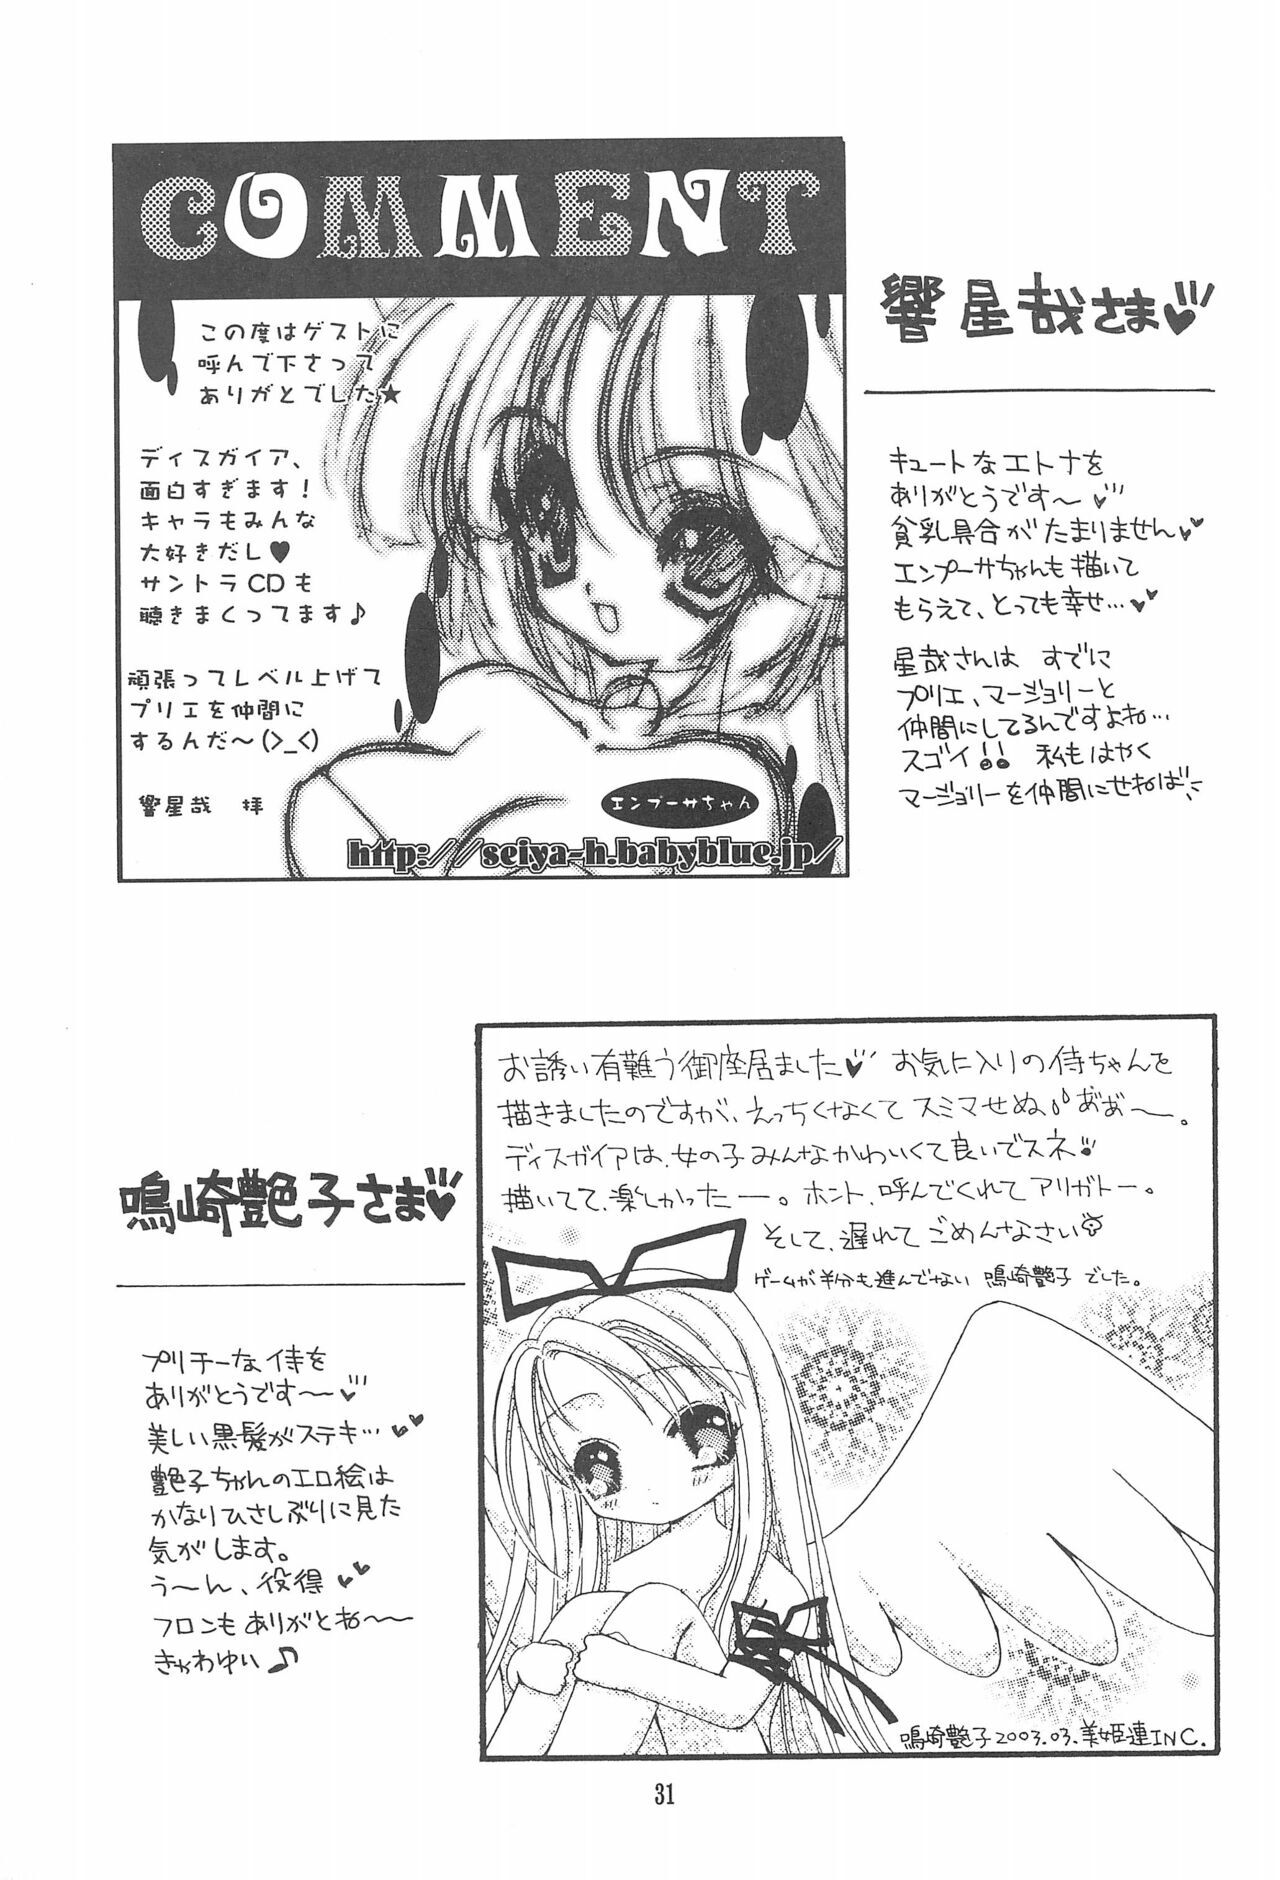 COMMENT
この度はゲストに
呼んで下さって
ありがとでした★
ディスガイア、
面白すぎます!
キャラもみんな
大好きだし♥
サントラCDも
聴きまくってます♪
頑張ってレベル上げて
プリエを仲間に
するんだ〜(>_<)
響星哉 拝
エンプーサちゃん
http://seiya-h.babyblue.jp/
響星哉さま♥
キュートなエトナを
ありがとうです〜♥
貧乳具合がたまりません♥
エンプーサちゃんも描いて
もらえて、とっても幸せ…♥
星哉さんは すでに
プリエ、マージョリーと
仲間にしてるんですよね…
スゴイ!! 私もはやく
マージョリーを仲間にせねば
お誘い有難う御座居ました♥ お気に入りの侍ちゃんを
描きましたのですが、えっちくなくてスミマせぬ、あぁ〜。
ディスガイアは、女の子みんなかわいくて良いでスネ
描いてて、楽しかったー。ホント、呼んでくれてアリガトー。
そして、遅れてごめんなさい
ゲームが半分も進んでない 鳴崎艶子 でした。
鳴崎艶子2003.03.美姫連INC.
鳴崎艶子さま♥
プリチーな侍を
ありがとうです〜♥
美しい黒髪がステキ…♥
艶子ちゃんのエロ絵は
かなりひさしぶりに見た
気がします。
う〜ん、役得♥
フロンもありがとね〜
きゃわゆい♪
31